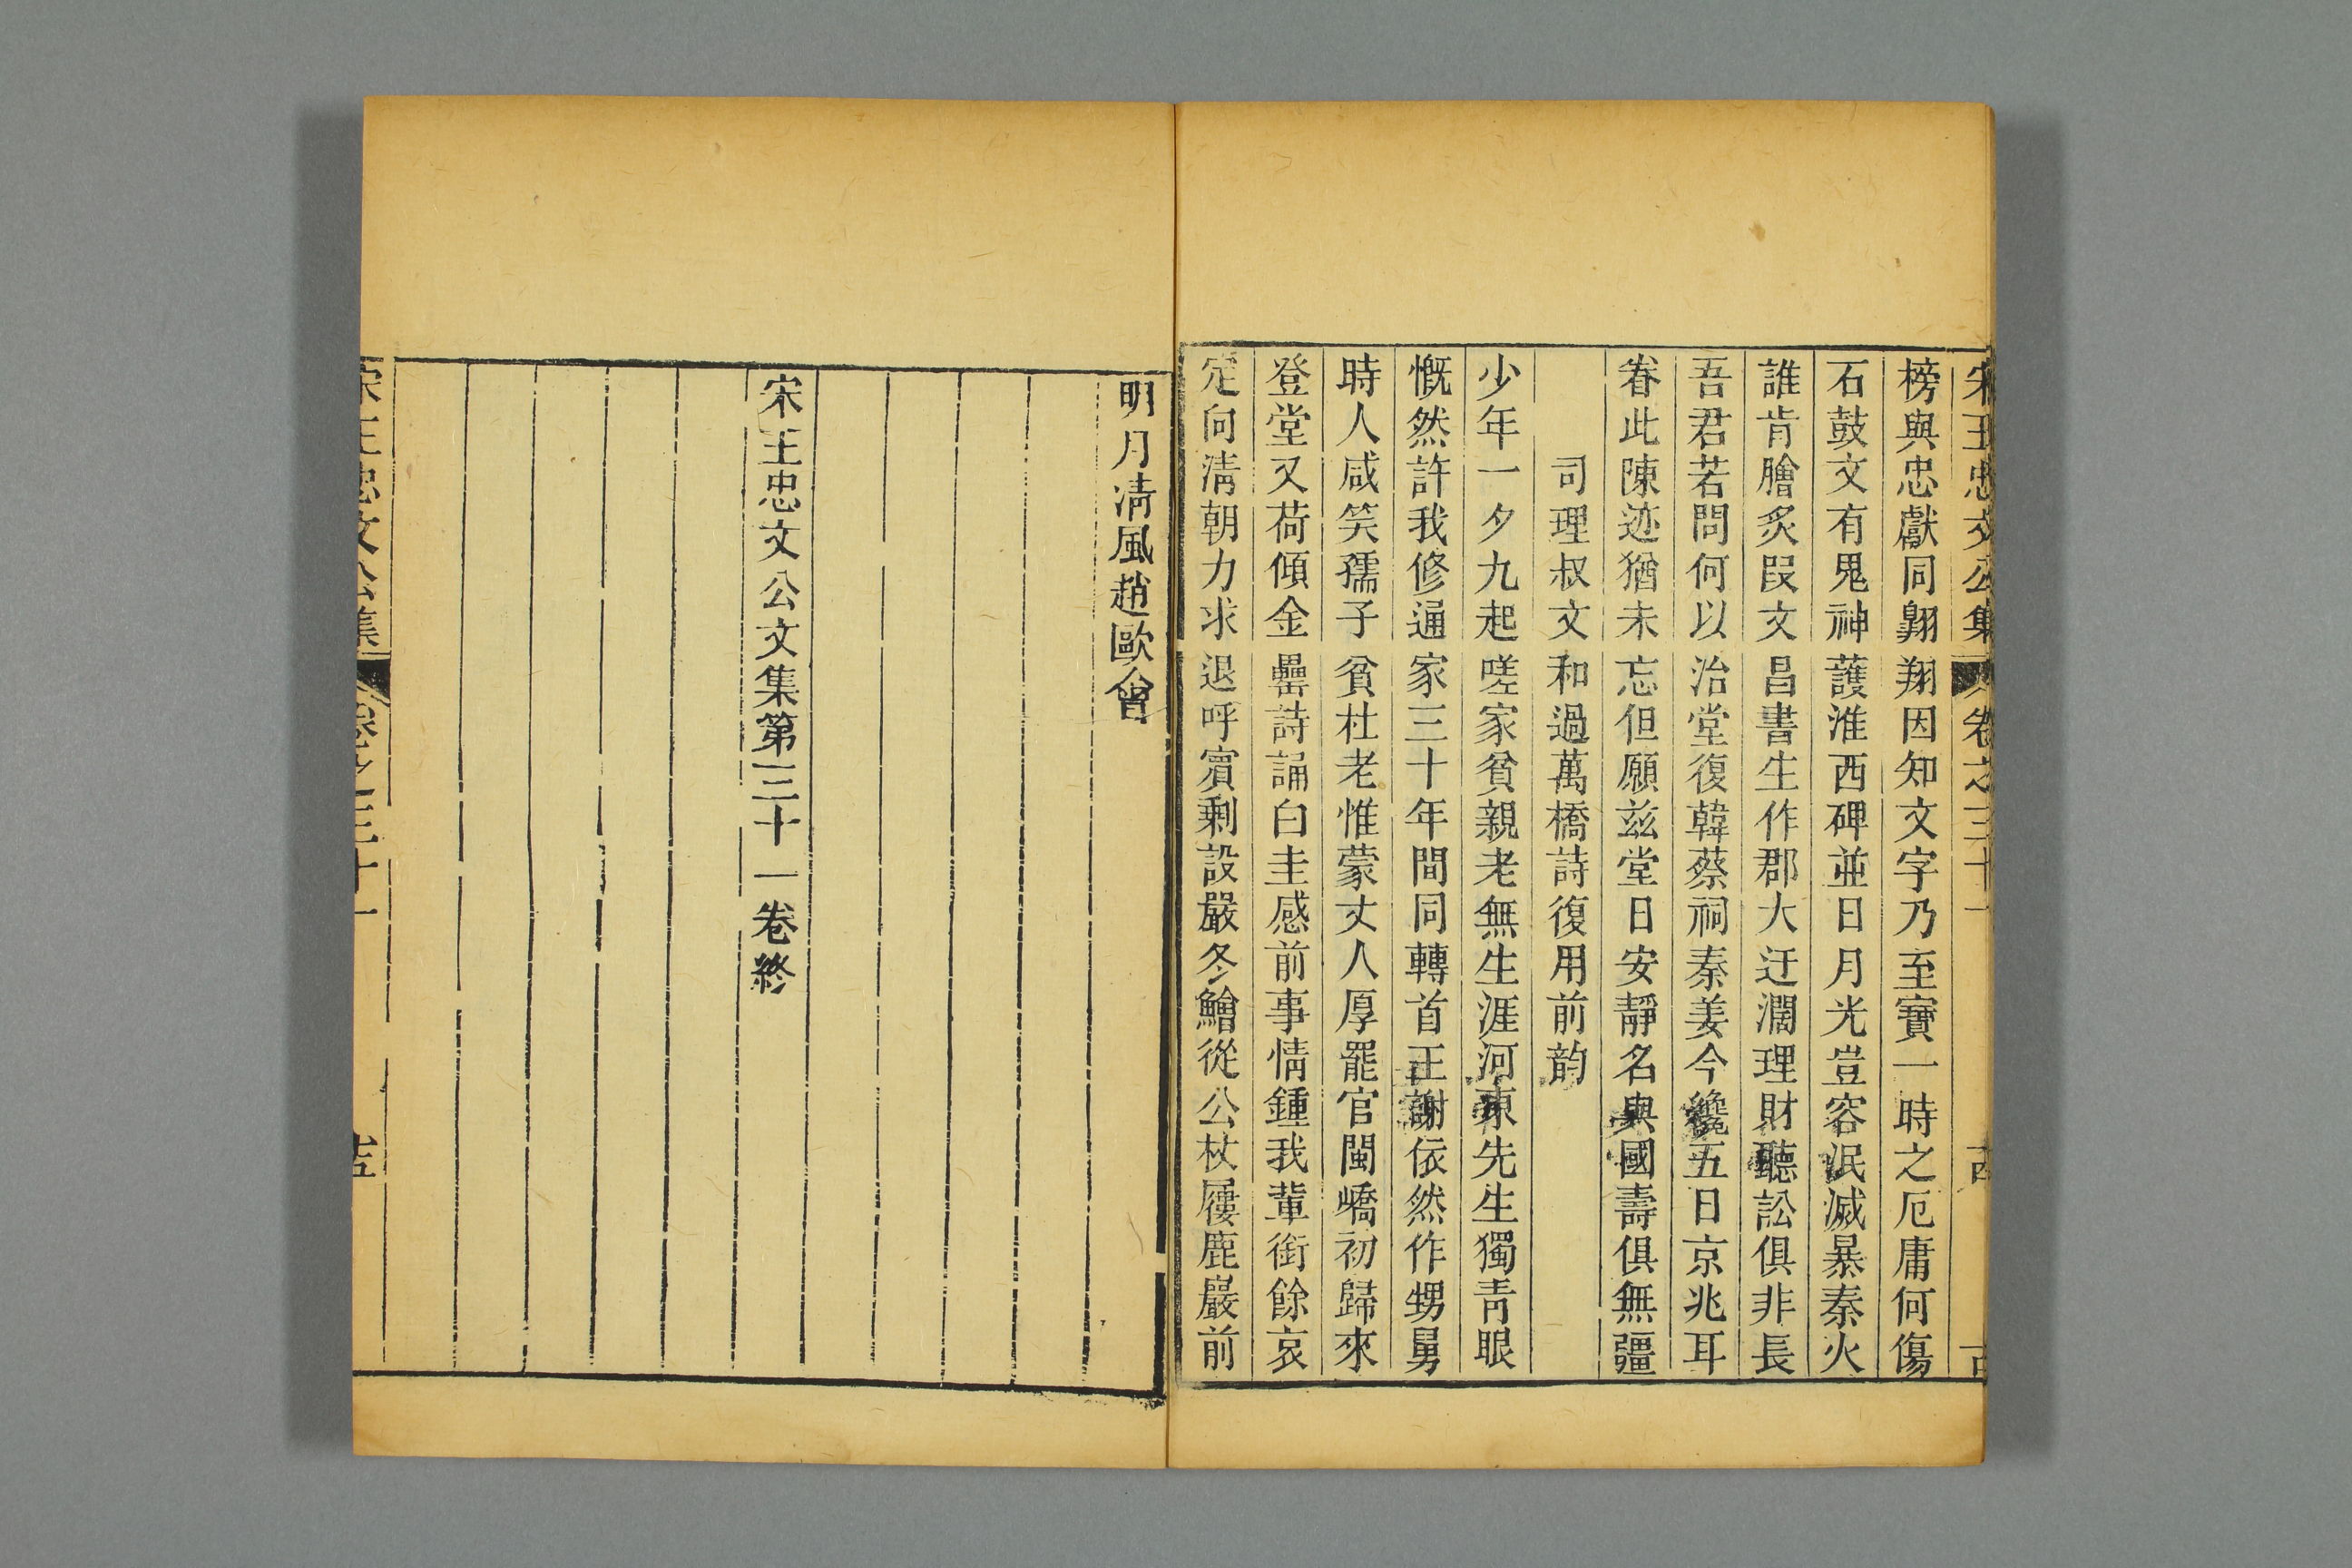 宋王忠文公集 卷之三十一
榜與忠獻同翺翔因知文字乃至寶一時之厄庸何傷
石鼓文有鬼神護淮西碑並日月光豈容泯滅暴秦火
誰肯膾炙段文昌書生作郡大迂濶理財聽訟俱非長
吾君若問何以治堂復韓蔡祠秦姜今纔五日京兆耳
眷此陳迹猶未忘但願兹堂日安靜名與國壽俱無疆
司理叔文和過萬橋詩復用前韵
少年一夕九起嗟家貧親老無生涯河東先生獨靑眼
慨然許我修通家三十年間同轉首王謝依然作甥舅
時人咸笑孺子貧杜老惟蒙丈人厚罷官閩嶠初歸來
登堂又荷傾金罍詩誦白圭感前事情鍾我輩銜餘哀
定向淸朝力求退呼賓剩設嚴冬鱠從公杖屨鹿巖前
明月淸風趙歐會
宋王忠文公文集第三十一卷終
宋王忠文公集 卷之三十一 十五